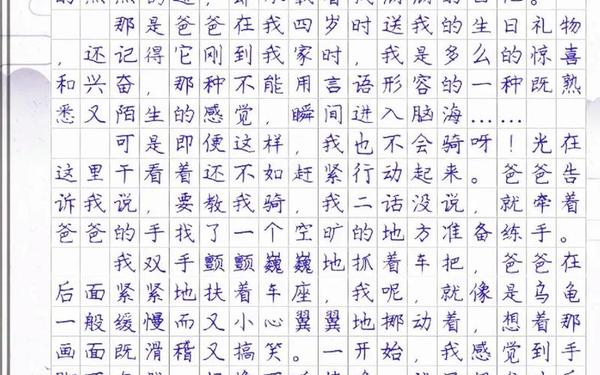 那是爸爸在我四岁时送我的生日礼物
，还记得它刚到我家时，我是多么的惊喜
和兴奋，那种不能用言语形容的一种既熟
悉又陌生的感觉，瞬间进入脑海……
可是即便这样，我也不会骑呀！光在
这里干看着还不如赶紧行动起来。爸爸告
诉我说，要教我骑，我二话没说，就牵着
爸爸的手找了一个空旷的地方准备练手。
我双手颤颤巍巍地抓着车把，爸爸在
后面紧紧地扶着车座，我呢，就像是乌龟
一般缓慢而又小心翼翼地挪动着，想着那
画面既滑稽又搞笑。一开始，我感觉到手